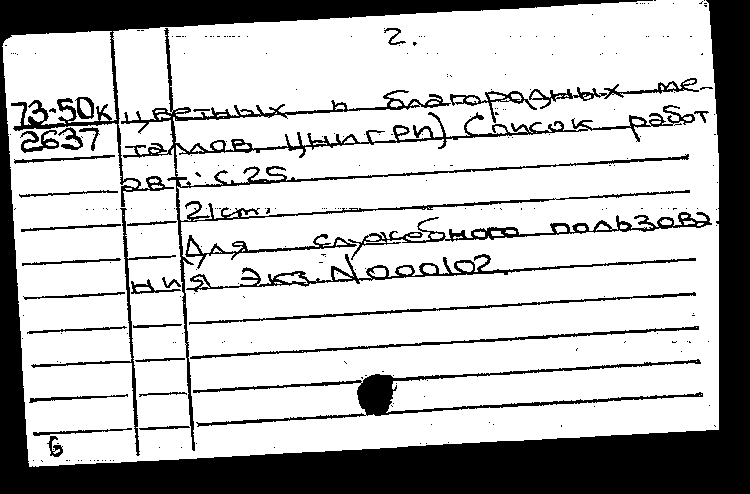 2.
73-50к цветных и благородных ме-
2637 таллов. ЦНИГРИ). Список работ
авт.: с. 25.
21 cm.
Для служебного пользова
ния Экз. N 000102.